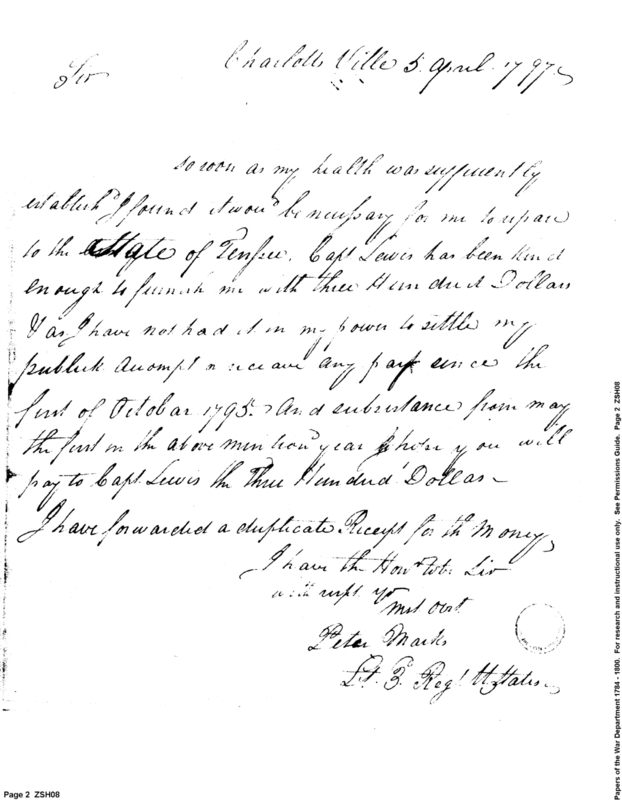 Charlotts Ville 5 april 1797
Sir
so soon as my health was suffucently
establish'd I found it woud be necessary for me to repare
to the State of Tenssee. Capt Lewis has been kind
enough to furnish me with three Hundred Dollars
& as I have not had it in my power to settle my
publick accompt or receave any pay since the
first of October 1795 And subsistance from may
the first in the above mentiond year I hope you will
pay to Capt. Lewis the Three Hundred Dollars
I have forwarded a duplicate Receipt for th Money
I have the Honr to be Sir
with respt. yr
mst Obt.
Peter Marks
Lt. 3. Regt. U States
Page 2 ZSH08
Papers of the War Department 1784 - 1800. For research and instructional use only. See Permissions Guide. Page 2 ZSH08